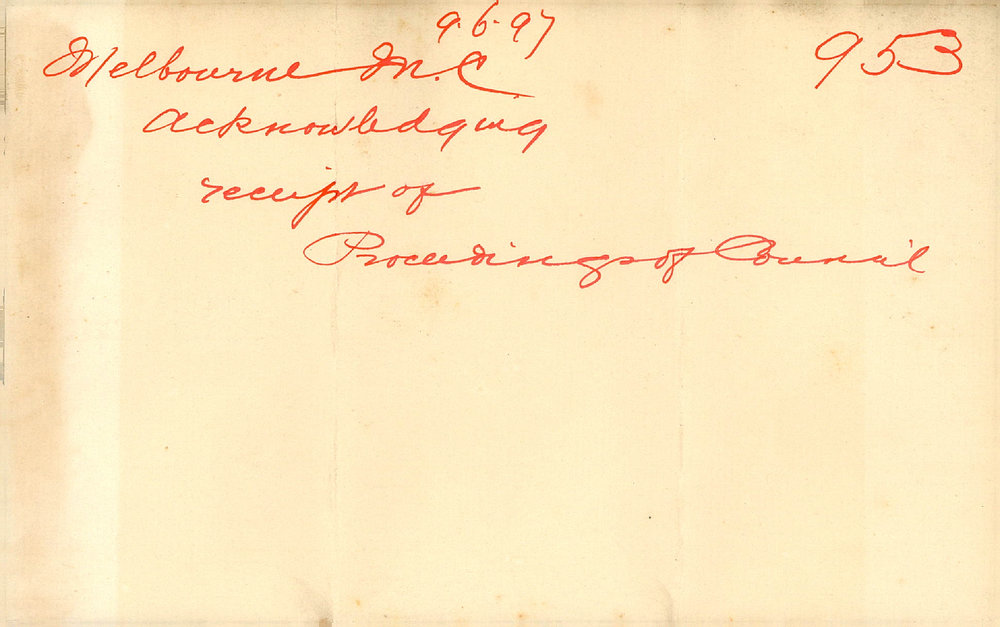 9.6.97
953
Melbourne M.C.
acknowledging
receipt of
Proceedings of Council